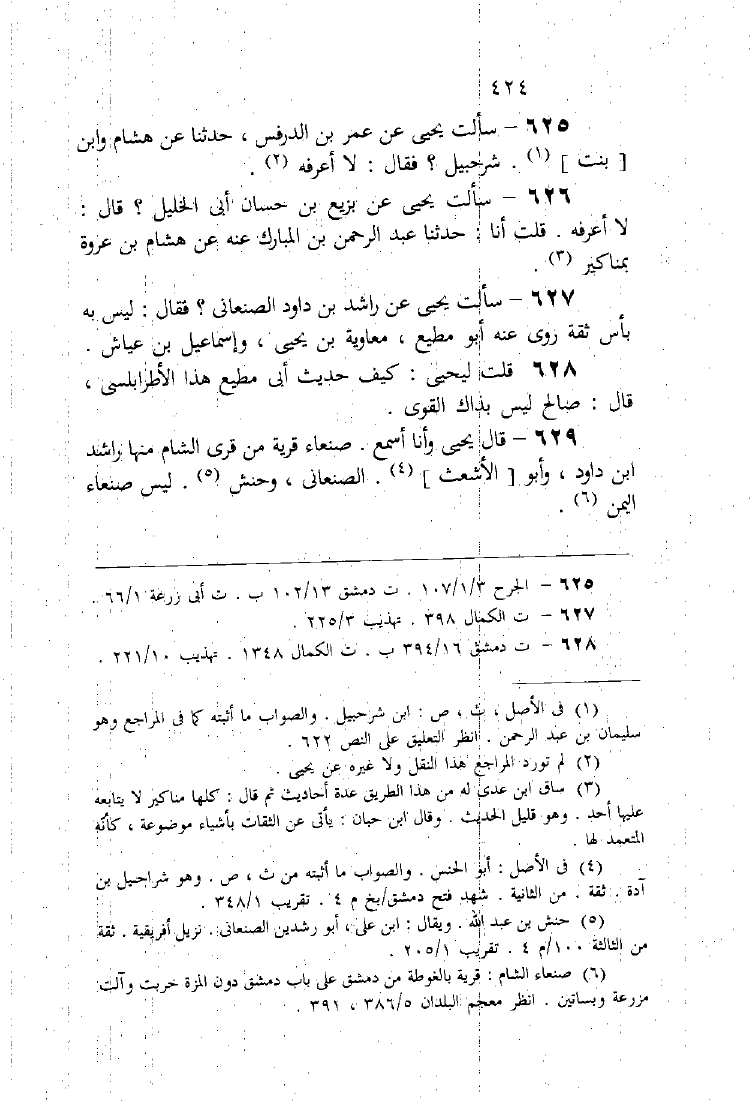 ٤٢٤
٦٢٥ – سألت يحيى عن عمر بن الدرفس ، حدثنا عن هشام وابن
[ بنت ] (١) . شرحبيل ؟ فقال : لا أعرفه (٢) .
٦٢٦ – سألت يحيى عن بزيع بن حسان أبى الخليل ؟ قال :
لا أعرفه . قلت أنا : حدثنا عبد الرحمن بن المبارك عنه عن هشام بن عروة
بمناكير (٣) .
٦٢٧ – سألت يحيى عن راشد بن داود الصنعانى ؟ فقال : ليس به
بأس ثقة روى عنه أبو مطيع ، معاوية بن يحيى ، وإسماعيل بن عياش .
٦٢٨ قلت ليحيى : كيف حديث أبى مطيع هذا الأطرابلسى ،
قال : صالح ليس بذاك القوى .
٦٢٩ – قال يحيى وأنا أسمع . صنعاء قرية من قرى الشام منها راشد
ابن داود ، وأبو [ الأشعث ] (٤) . الصنعانى ، وحنش (٥) . ليس صنعاء
اليمن (٦) .
٦٢٥ – الجرح ١٠٧/١/٣ . ت دمشق ١٠٢/١٣ ب . ت أبى زرعة ٦٦/١ .
٦٢٧ – ت الكمال ٣٩٨ . تهذيب ٢٢٥/٣ .
٦٢٨ – ت دمشق ٣٩٤/١٦ ب . ت الكمال ١٣٤٨ . تهذيب ٢٢١/١٠ .
(١) فى الأصل ، ث ، ص : ابن شرحبيل . والصواب ما أثبته كما فى المراجع وهو
سليمان بن عبد الرحمن . انظر التعليق على النص ٦٢٢ .
(٢) لم تورد المراجع هذا النقل ولا غيره عن يحيى .
(٣) ساق ابن عدى له من هذا الطريق عدة أحاديث ثم قال : كلها مناكير لا يتابعه
عليها أحد . وهو قليل الحديث . وقال ابن حبان : يأتى عن الثقات بأشياء موضوعة ، كأنه
المتعمد لها .
(٤) فى الأصل : أبو الحنس . والصواب ما أثبته من ث ، ص . وهو شراحيل بن
آدة . ثقة . من الثانية . شهد فتح دمشق/بخ م ٤ . تقريب ٣٤٨/١ .
(٥) حنش بن عبد الله . ويقال : ابن على ، أبو رشدين الصنعانى . نزيل أفريقية . ثقة
من الثالثة ١٠٠/م ٤ . تقريب ٢٠٥/١ .
(٦) صنعاء الشام : قرية بالغوطة من دمشق على باب دمشق دون المزة خربت وآلت
مزرعة وبساتين . انظر معجم البلدان ٣٨٦/٥ ، ٣٩١ .